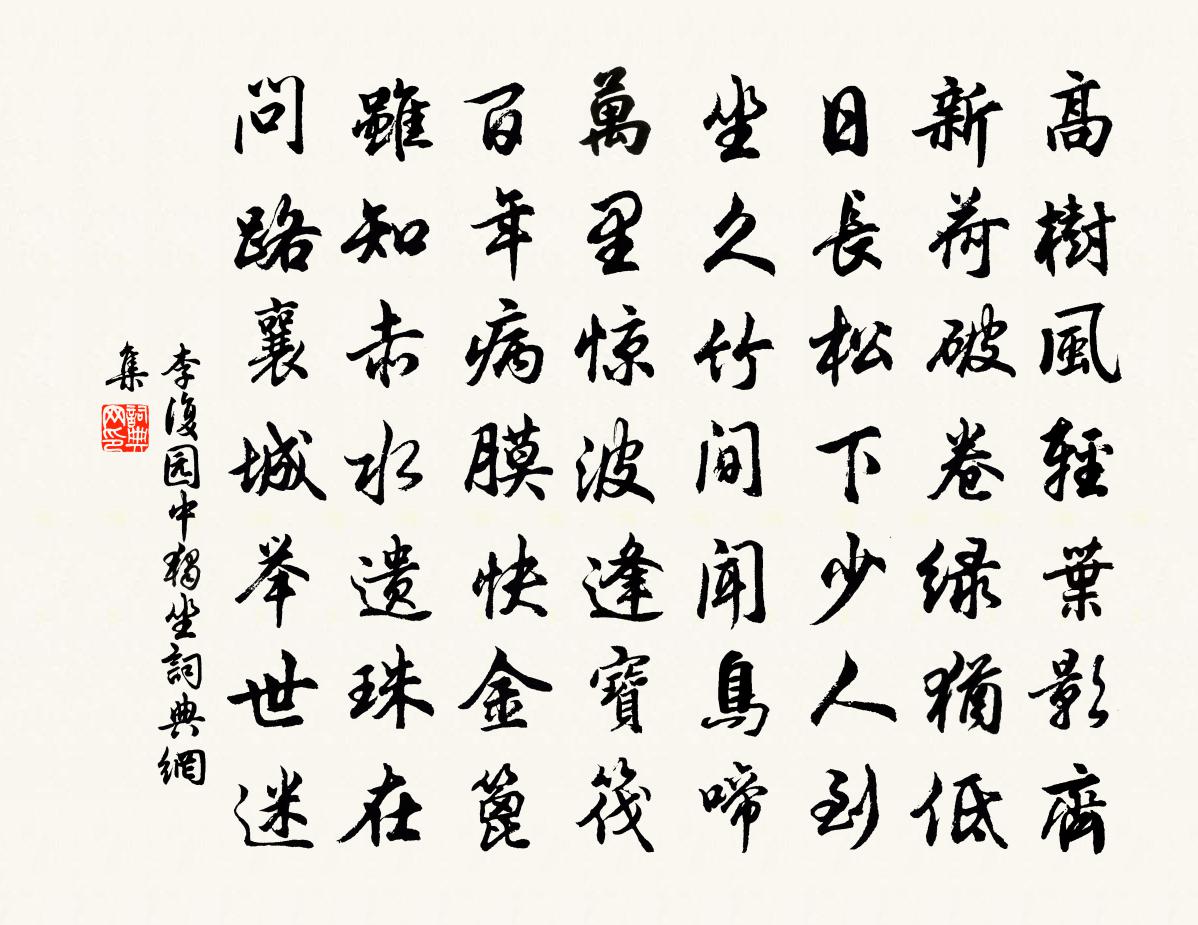 高樹風輕葉影齊
新荷破卷緑猶低
日長松下少人到
坐久竹間聞鳥啼
萬里惊波逢寶筏
百年病膜快金篦
雖知赤水遗珠在
問路襄城举世迷
李復园中獨坐詞典網
集
詞典网印